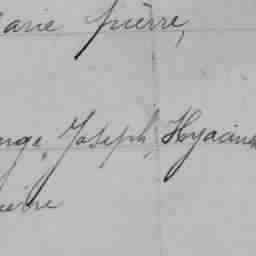 arie pierre,
ange, Joseph, Hyacin
ierre